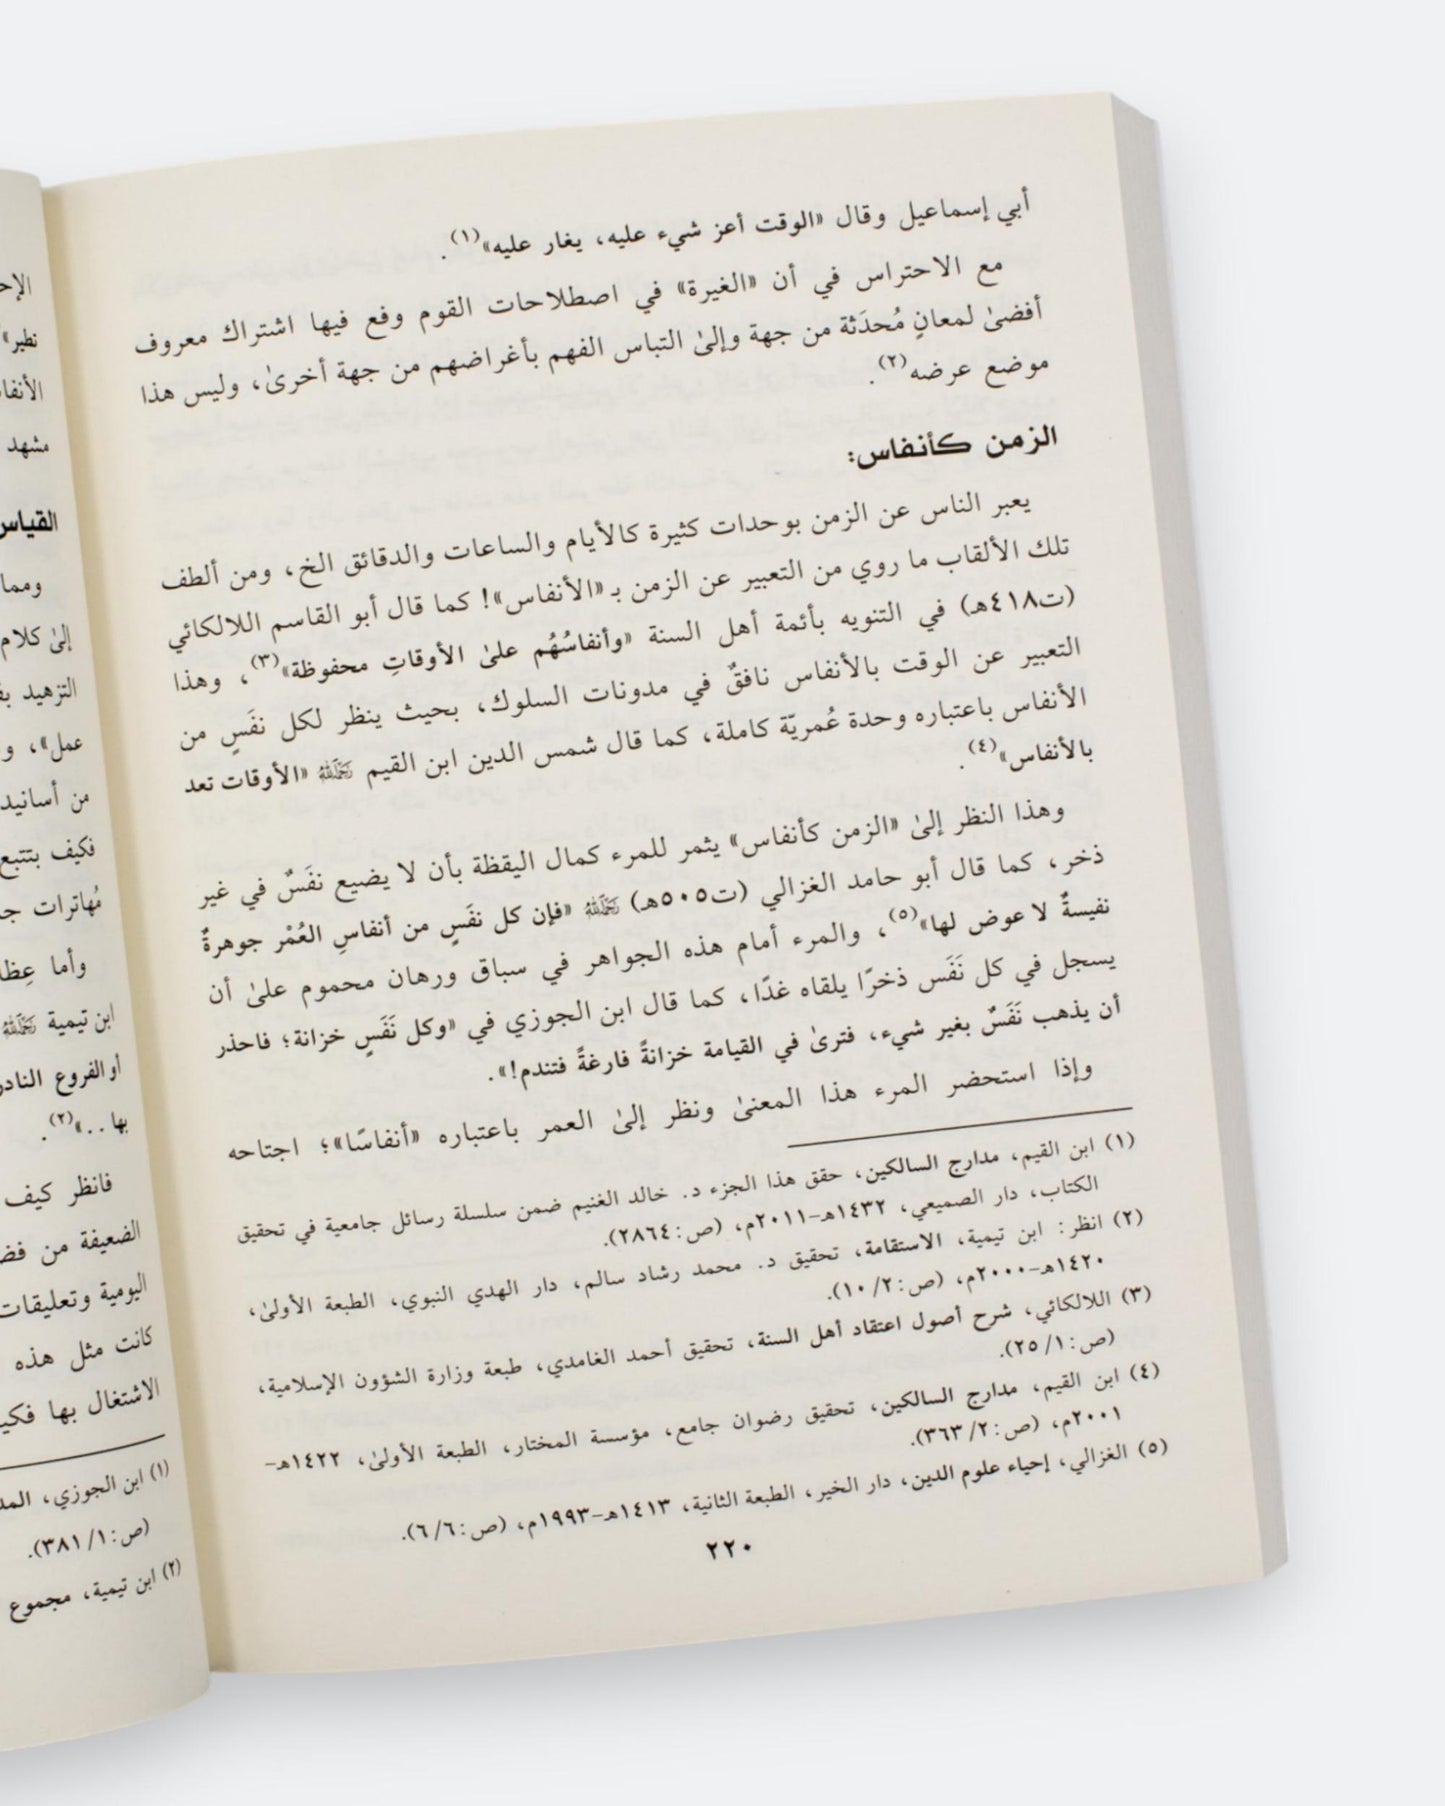 أبي إسماعيل وقال «الوقت أعز شيء عليه، يغار عليه»(١).
مع الاحتراس في أن «الغيرة» في اصطلاحات القوم وقع فيها اشتراك معروف
أفضىٰ لمعانٍ مُحدَثة من جهة وإلىٰ التباس الفهم بأغراضهم من جهة أخرىٰ، وليس هذا
موضع عرضه(٢).
الزمن كأنفاس:
يعبر الناس عن الزمن بوحدات كثيرة كالأيام والساعات والدقائق الخ، ومن ألطف
تلك الألقاب ما روي من التعبير عن الزمن بـ «الأنفاس»! كما قال أبو القاسم اللالكائي
(ت٤١٨هـ) في التنويه بأئمة أهل السنة «وأنفاسُهُم علىٰ الأوقاتِ محفوظة»(٣)، وهذا
التعبير عن الوقت بالأنفاس نافقٌ في مدونات السلوك، بحيث ينظر لكل نفَسٍ من
الأنفاس باعتباره وحدة عُمريّة كاملة، كما قال شمس الدين ابن القيم رَحِمَهُ اللَّهُ «الأوقات تعد
بالأنفاس»(٤).
وهذا النظر إلىٰ «الزمن كأنفاس» يثمر للمرء كمال اليقظة بأن لا يضيع نفَسٌ في غير
ذخر، كما قال أبو حامد الغزالي (ت٥٠٥هـ) رَحِمَهُ اللَّهُ «فإن كل نفَسٍ من أنفاسِ العُمْر جوهرةٌ
نفيسةٌ لا عوض لها»(٥)، والمرء أمام هذه الجواهر في سباق ورهان محموم علىٰ أن
يسجل في كل نَفَس ذخرًا يلقاه غدًا، كما قال ابن الجوزي في «وكل نَفَسٍ خزانة؛ فاحذر
أن يذهب نَفَسٌ بغير شيء، فترىٰ في القيامة خزانةً فارغةً فتندم!».
وإذا استحضر المرء هذا المعنىٰ ونظر إلىٰ العمر باعتباره «أنفاسًا»؛ اجتاحه
(١) ابن القيم، مدارج السالكين، حقق هذا الجزء د. خالد الغنيم ضمن سلسلة رسائل جامعية في تحقيق
الكتاب، دار الصميعي، ١٤٣٢هـ-٢٠١١م، (ص:٢٨٦٤).
(٢) انظر: ابن تيمية، الاستقامة، تحقيق د. محمد رشاد سالم، دار الهدي النبوي، الطبعة الأولىٰ،
١٤٢٠هـ-٢٠٠٠م، (ص:١٠/٢).
(٣) اللالكائي، شرح أصول اعتقاد أهل السنة، تحقيق أحمد الغامدي، طبعة وزارة الشؤون الإسلامية،
(ص:٢٥/١).
(٤) ابن القيم، مدارج السالكين، تحقيق رضوان جامع، مؤسسة المختار، الطبعة الأولىٰ، ١٤٢٢هـ-
٢٠٠١م، (ص:٣٦٣/٢).
(٥) الغزالي، إحياء علوم الدين، دار الخير، الطبعة الثانية، ١٤١٣هـ-١٩٩٣م، (ص:٦/٦).
٢٢٠
نطير»
مشهد
القياس
ومما
إلىٰ كلام
التزهيد
عمل»، و
من أسانيد
فكيف بتتبع
مُهاترات
وأما
ابن تيمية رَحِمَهُ اللَّهُ
أو الفروع
بها ..»(٢).
فانظر كيف
الضعيفة من
اليومية وتعليقات
كانت مثل هذه
الاشتغال بها
(١) ابن الجوزي،
(ص:٣٨١/١).
(٢) ابن تيمية، مجموع